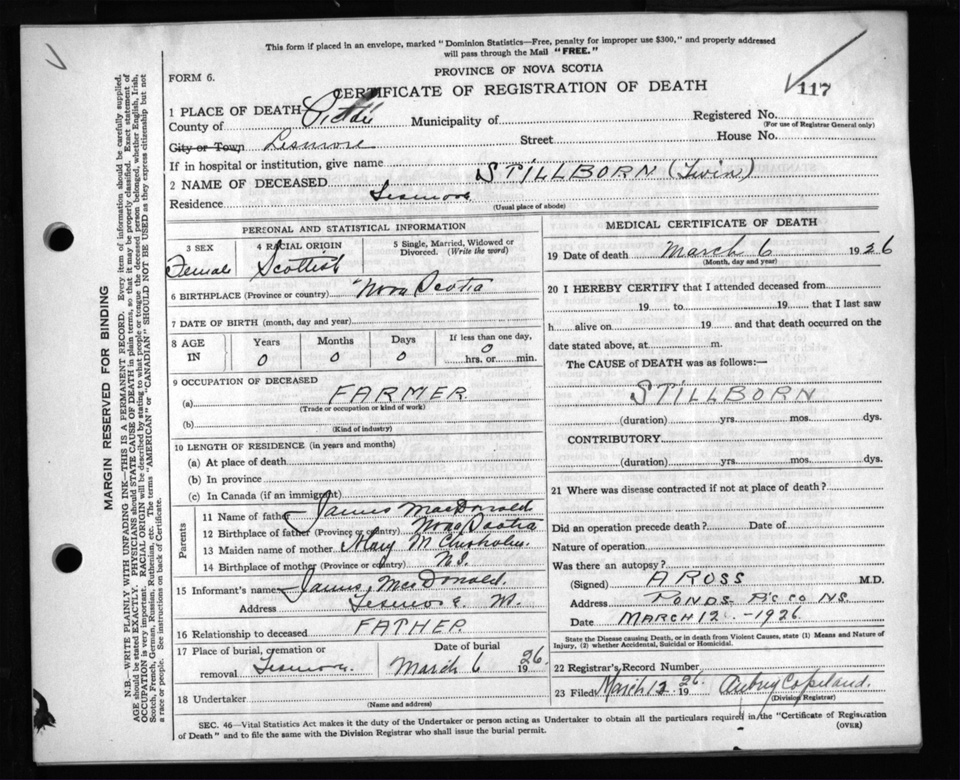 This form if placed in an envelope, marked "Dominion Statistics—Free, penalty for improper use $300," and properly addressed
will pass through the Mail "FREE."
PROVINCE OF NOVA SCOTIA
FORM 6.
CERTIFICATE OF REGISTRATION OF DEATH
117
1 PLACE OF DEATH
County of Pictou Municipality of Registered No.
(For use of Registrar General only)
City or Town Lismore Street House No.
If in hospital or institution, give name
2 NAME OF DECEASED STILLBORN (Twin)
Residence Lismore
(Usual place of abode)
PERSONAL AND STATISTICAL INFORMATION
3 SEX 4 RACIAL ORIGIN 5 Single, Married, Widowed or Divorced. (Write the word)
Female Scottish
6 BIRTHPLACE (Province or country) Nova Scotia
7 DATE OF BIRTH (month, day and year)
8 AGE IN Years Months Days If less than one day,
0 0 0 0 hrs. or min.
9 OCCUPATION OF DECEASED
(a) FARMER
(Trade or occupation or kind of work)
(b)
(Kind of industry)
10 LENGTH OF RESIDENCE (in years and months)
(a) At place of death
(b) In province
(c) In Canada (if an immigrant)
Parents
11 Name of father James MacDonald
12 Birthplace of father (Province or country) Nova Scotia
13 Maiden name of mother Mary M Chisholm
14 Birthplace of mother (Province or country) N.S.
15 Informant's name James MacDonald.
Address Lismore
16 Relationship to deceased FATHER
17 Place of burial, cremation or removal Lismore
Date of burial
March 6 1926
18 Undertaker
(Name and address)
MEDICAL CERTIFICATE OF DEATH
19 Date of death March 6 1926
(Month, day and year)
20 I HEREBY CERTIFY that I attended deceased from
19 to 19 that I last saw
h alive on 19 and that death occurred on the
date stated above, at m.
The CAUSE OF DEATH was as follows:—
STILLBORN
(duration) yrs. mos. dys.
CONTRIBUTORY
(duration) yrs. mos. dys.
21 Where was disease contracted if not at place of death?
Did an operation precede death? Date of
Nature of operation
Was there an autopsy?
(Signed) A ROSS M.D.
Address PONDS P.C. CO N.S.
Date MARCH 12 - 1926
State the Disease causing Death, or in death from Violent Causes, state (1) Means and Nature of
Injury, (2) whether Accidental, Suicidal or Homicidal.
22 Registrar's Record Number
23 Filed March 12 1926 Aubrey Copeland.
(Division Registrar)
SEC. 46—Vital Statistics Act makes it the duty of the Undertaker or person acting as Undertaker to obtain all the particulars required in the "Certificate of Registration
of Death" and to file the same with the Division Registrar who shall issue the burial permit. (OVER)
MARGIN RESERVED FOR BINDING
N.B.—WRITE PLAINLY WITH UNFADING INK—THIS IS A PERMANENT RECORD. Every item of information should be carefully supplied.
AGE should be stated EXACTLY. PHYSICIANS should STATE CAUSE OF DEATH in plain terms, so that it may be properly classified. Exact statement of
OCCUPATION is very important. RACIAL ORIGIN will be described by stating to what people or tongue the deceased person belonged, whether English, Irish,
Scotch, French, German, Russian, Ruthenian, etc. The terms "AMERICAN" or "CANADIAN" SHOULD NOT BE USED as they express citizenship but not
a race or people. See instructions on back of Certificate.